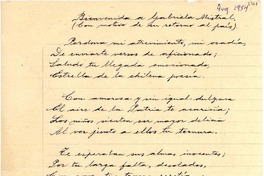 Aug 1954
Bienvenida a Gabriela Mistral,
(Con motivo de su retorno al país)
Perdona mi atrevimiento, mi osadía,
De enviarte versos de aficionado;
Saludo tu llegada emocionado,
Estrella de la chilena poesía.
Con amorosa y sin igual dulzura
El aire de la Patria te acaricia;
Los niños sienten su mayor delicia
Al ver junto a ellos tu ternura.
Te esperaban sus almas inocentes;
Por tu larga falta, desolados,